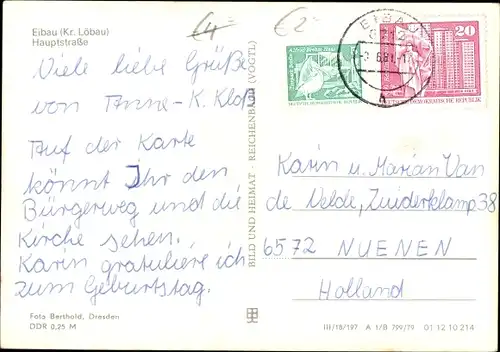 Eibau (Kr. Löbau)
Hauptstraße
€4
€2
Viele liebe Grüße
von Anne-K. Kloß
Auf der Karte
könnt Ihr den
Bürgerweg und die
Kirche sehen.
Karin gratuliere ich
zum Geburtstag.
Foto Berthold, Dresden
DDR 0,25 M
BILD UND HEIMAT · REICHENBACH (VOGTL)
EIBAU
20
DEMOKRATISCHE REPUBLIK
Karin u. Marian Van
de Velde, Zuiderklamp 38
6572 NUENEN
Holland
III/18/197 A 1/B 799/79 01 12 10 214